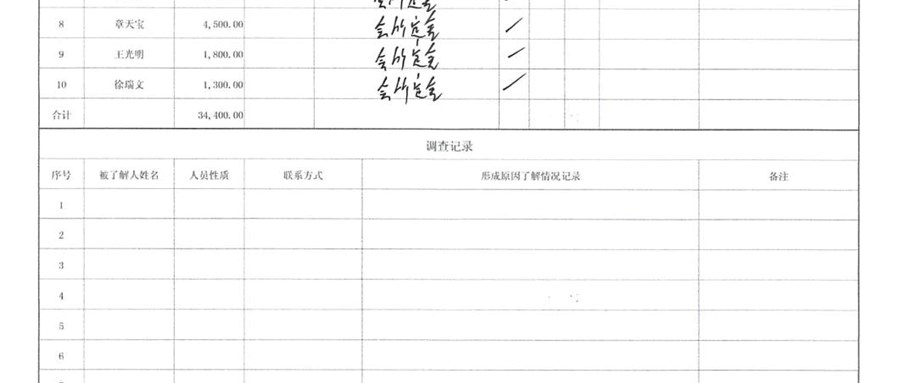 会所定金
8 章天宝 4,500.00 会所定金
9 王光明 1,800.00 会所定金
10 徐瑞文 1,300.00 会所定金
合计 34,400.00
调查记录
序号 被了解人姓名 人员性质 联系方式 形成原因了解情况记录 备注
1
2
3
4
5
6